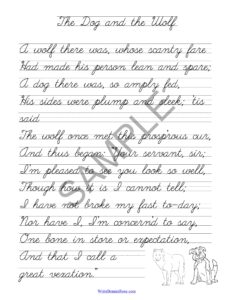 The Dog and the Wolf
A wolf there was, whose scanty fare
Had made his person lean and spare;
A dog there was, so amply fed,
His sides were plump and sleek; 'tis
said
The wolf once met this prosp'rous cur,
And thus began: "Your servant, sir;
I'm pleased to see you look so well,
Though how it is I cannot tell;
I have not broke my fast to-day;
Nor have I, I'm concern'd to say,
One bone in store or expectation,
And that I call a
great vexation."
SAMPLE